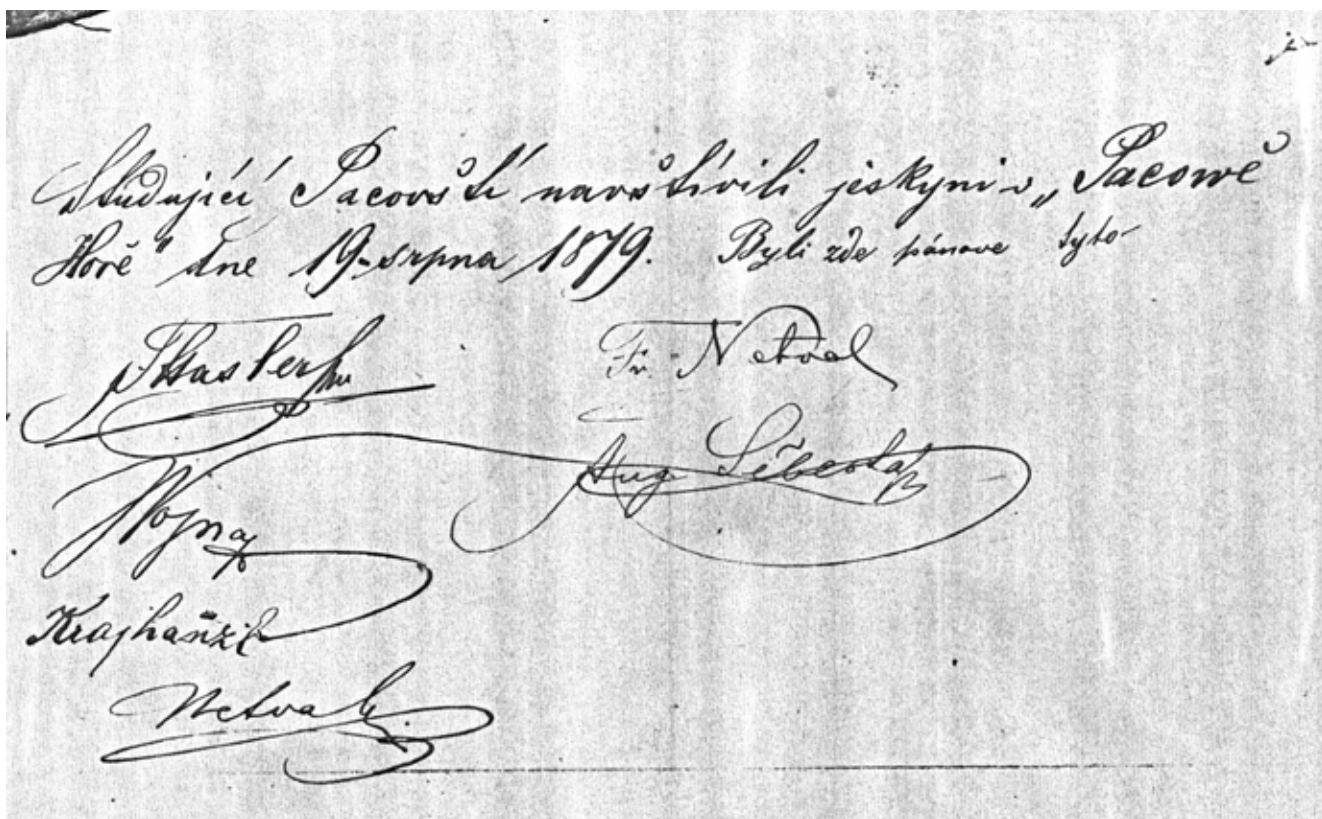 Študující Pacovští navštívili jeskyni v „Pacowě
Hoře" dne 19. srpna 1879. Byli zde pánove tyto
Fr. Netval
Aug. Šeberta
Wojna
Krajhanzl
Netval